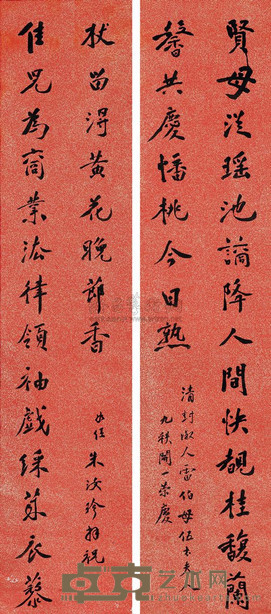 賢母從瑤池謫降人間快覩桂馥蘭
馨共慶蟠桃今日熟
清封淑人雷伯母伍太夫
九秩開一榮慶
佳兒為商業法律領袖戲綵萊衣藜
杖留得黃花晚節香
侄朱汝珍拜祝
卓克艺术网